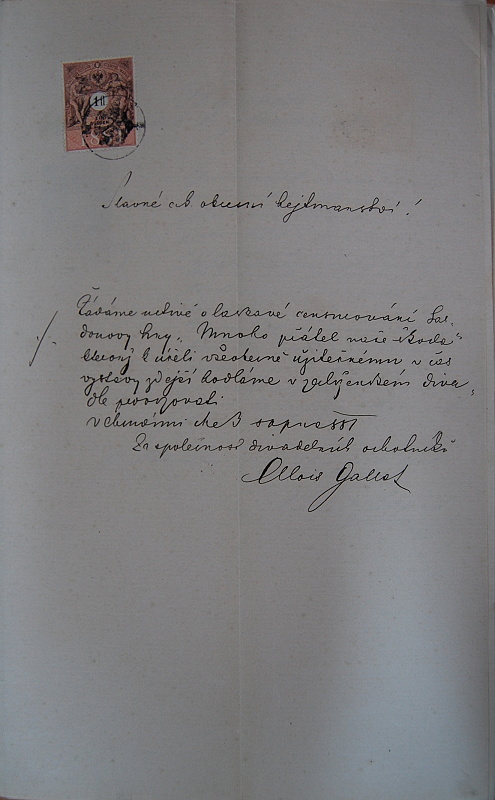 Slavné c.k. okresní hejtmanství!
Žádáme uctivě o laskavé censurování Sar-
douovy hry „Mnoho přátel naše škoda“
kterou k účeli všeobecně užitečnému v čas
výstavy zdejší hodláme v zdejšenském diva-
dle provozovati
V Chrudimi dne 3 srpna 881
Za společnost divadelních ochotníků
Alois Gallat